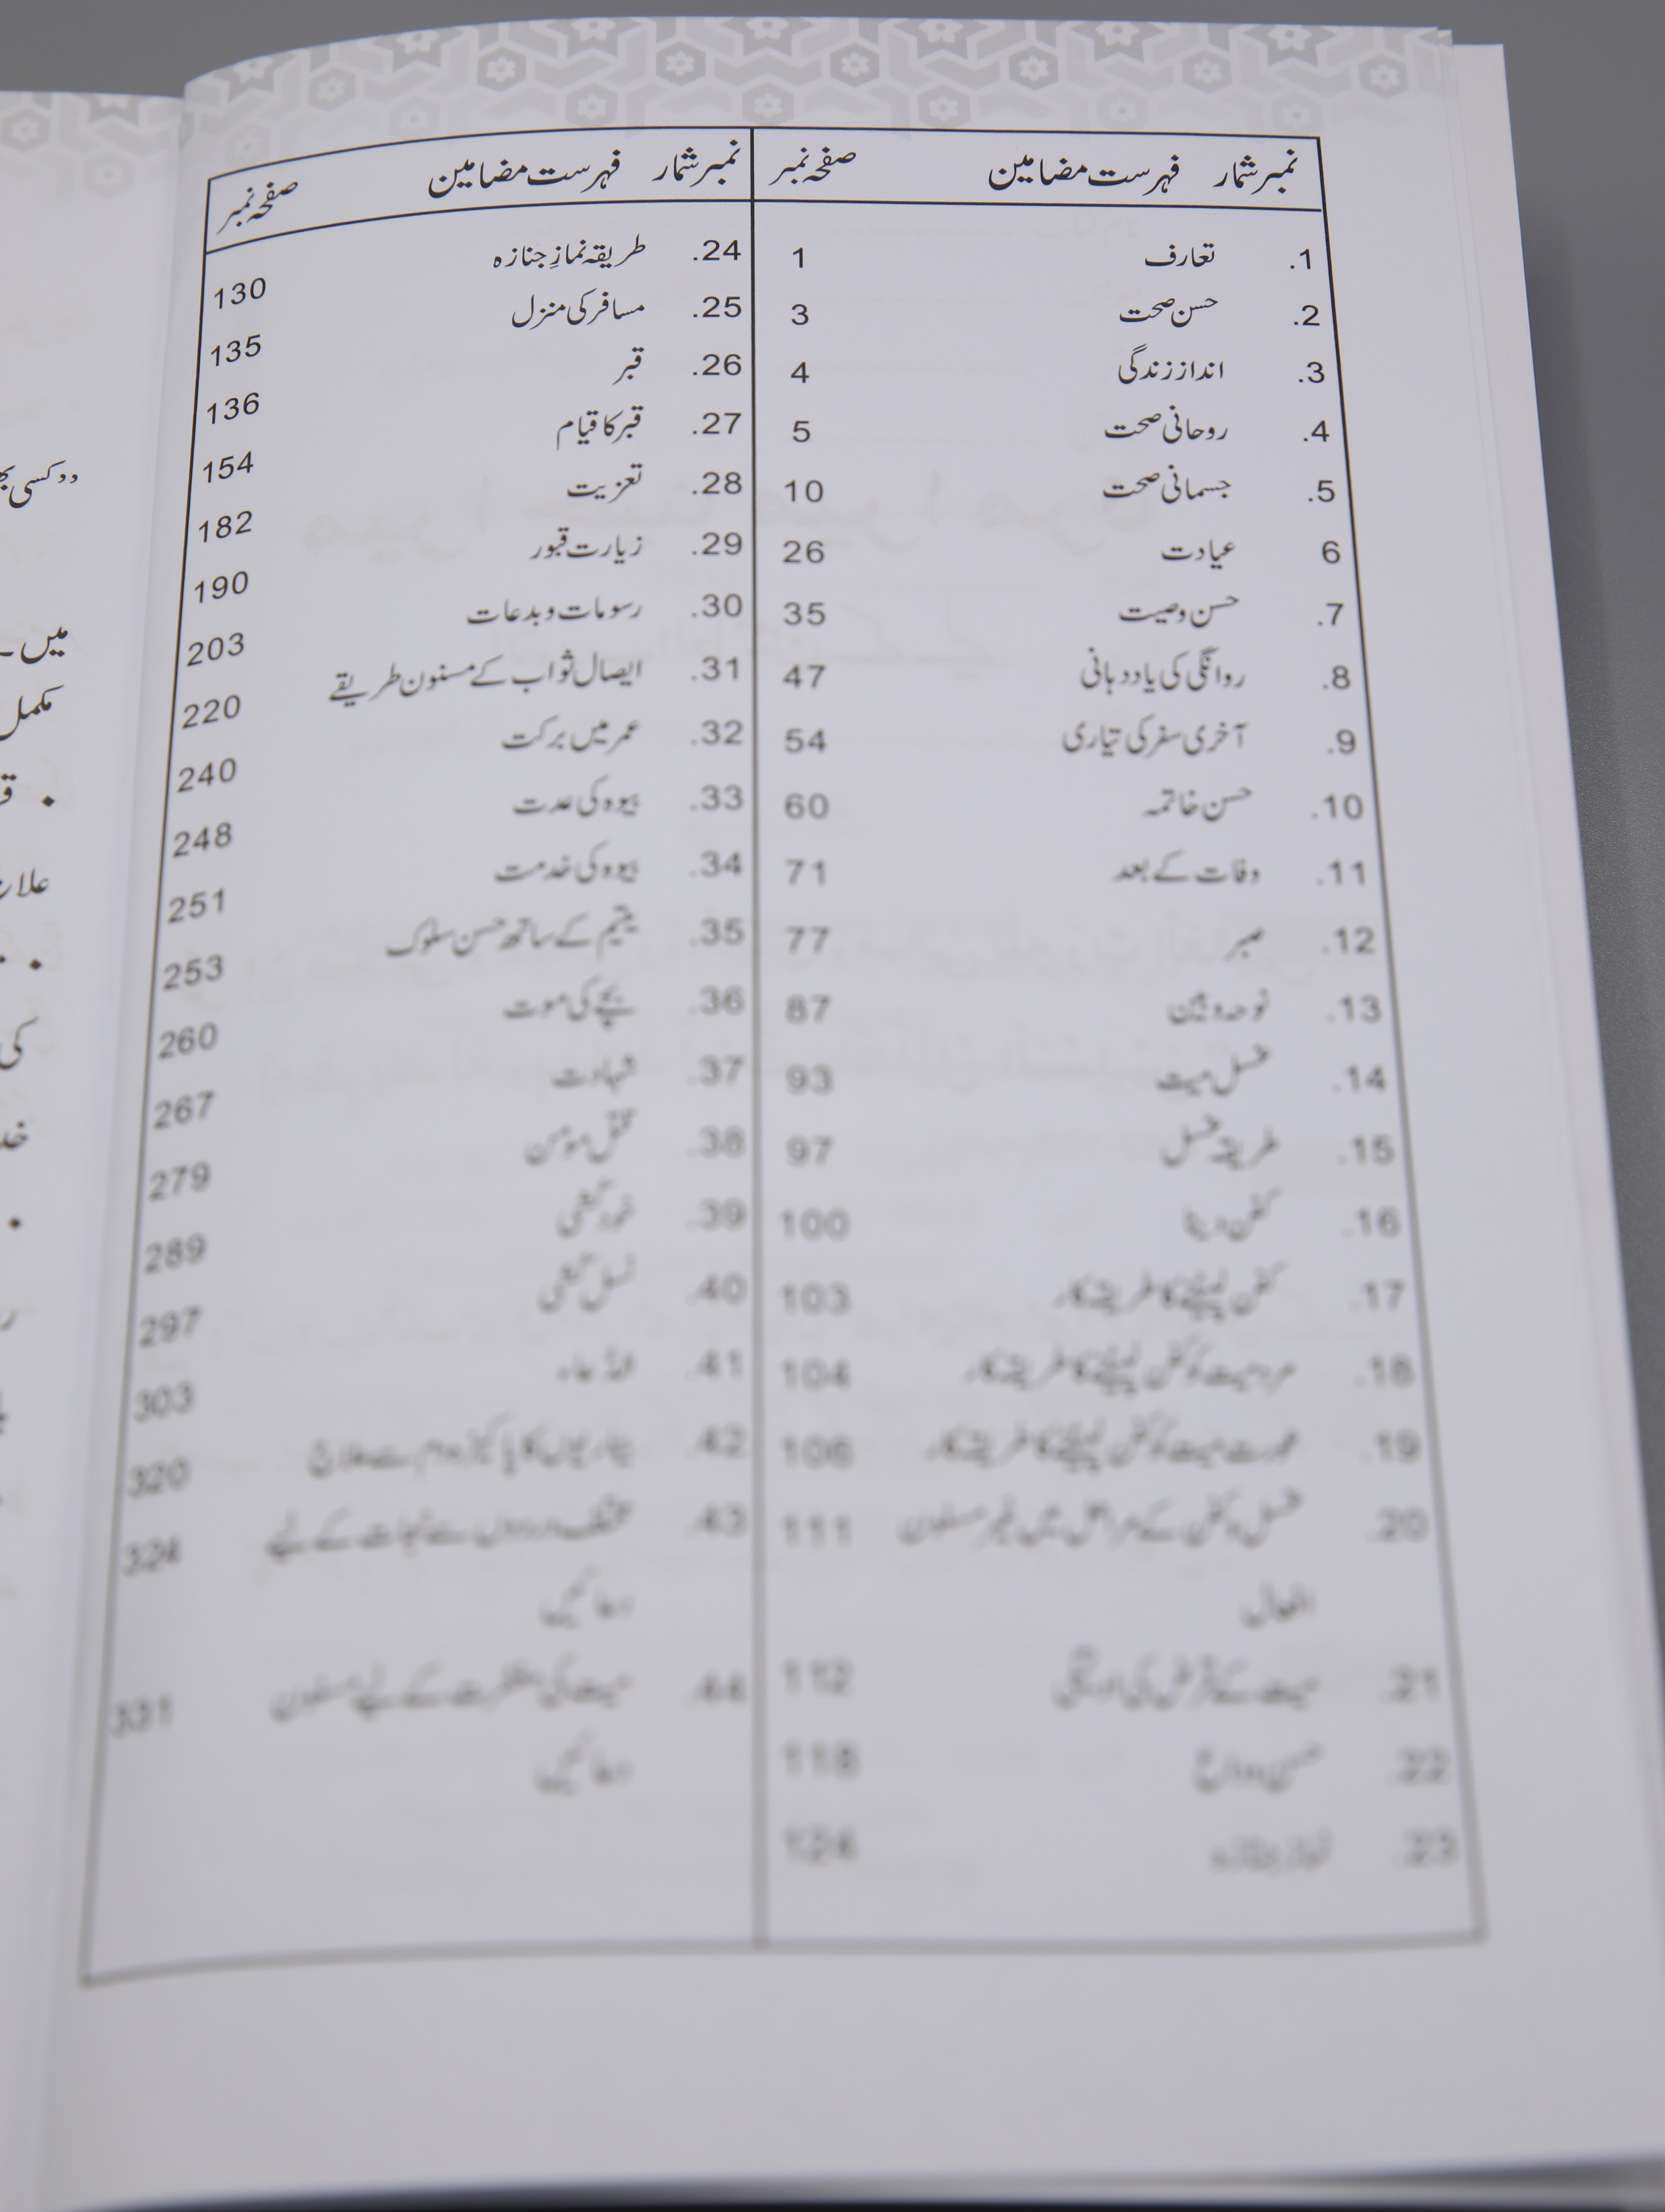 نمبر شمار فہرست مضامین صفحہ نمبر
1. تعارف 1
2. حسن صحت 3
3. انداز زندگی 4
4. روحانی صحت 5
5. جسمانی صحت 10
6 عیادت 26
7. حسن وصیت 35
8. روانگی کی یاد دہانی 47
9. آخری سفر کی تیاری 54
10. حسن خاتمہ 60
11. وفات کے بعد 71
12. صبر 77
13. نوحہ و بین 87
14. غسل میت 93
15. طریقہ غسل 97
16. کفن دینا 100
17. کفن لپیٹنے کا طریقے کار 103
18. مرد میت کو کفن لپیٹنے کا طریقے کار 104
19. عورت میت کو کفن لپیٹنے کا طریقے کار 106
20. غسل و کفن کے مراحل میں غیر مسنون 111
افعال
21. میت کے قرض کی ادائیگی 112
22. حسن وداع 118
23. نماز جنازہ 124
نمبر شمار فہرست مضامین صفحہ نمبر
24. طریقہ نمازِ جنازہ 130
25. مسافر کی منزل 135
26. قبر 136
27. قبر کا قیام 154
28. تعزیت 182
29. زیارت قبور 190
30. رسومات و بدعات 203
31. ایصال ثواب کے مسنون طریقے 220
32. عمر میں برکت 240
33. بیوہ کی عدت 248
34. بیوہ کی خدمت 251
35. یتیم کے ساتھ حسن سلوک 253
36. بچے کی موت 260
37. شہادت 267
38. قتل مومن 279
39. خود کشی 289
40. نسل کشی 297
41. 303
42. بیماریوں کا پاکیزہ دم سے علاج 320
43. مختلف دردوں سے نجات کے لیے 324
دعائیں
44. میت کی مغفرت کے لیے مسنون 331
دعائیں
میں۔
مکمل